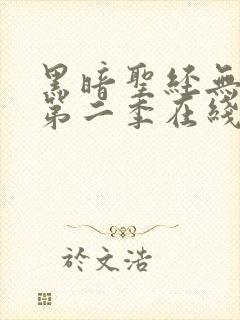 黑暗聖經無
第二季在綫
於文浩